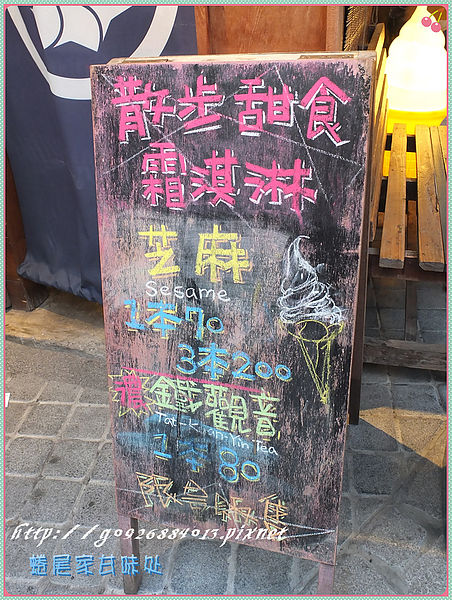 散步甜食
霜淇淋
芝麻
Sesame
1本70
3本200
濃 鐵觀音
Tat-Kuan-Yin Tea
1本80
限量販售
http://g0926884013.pixnet
蝸居家甘味处